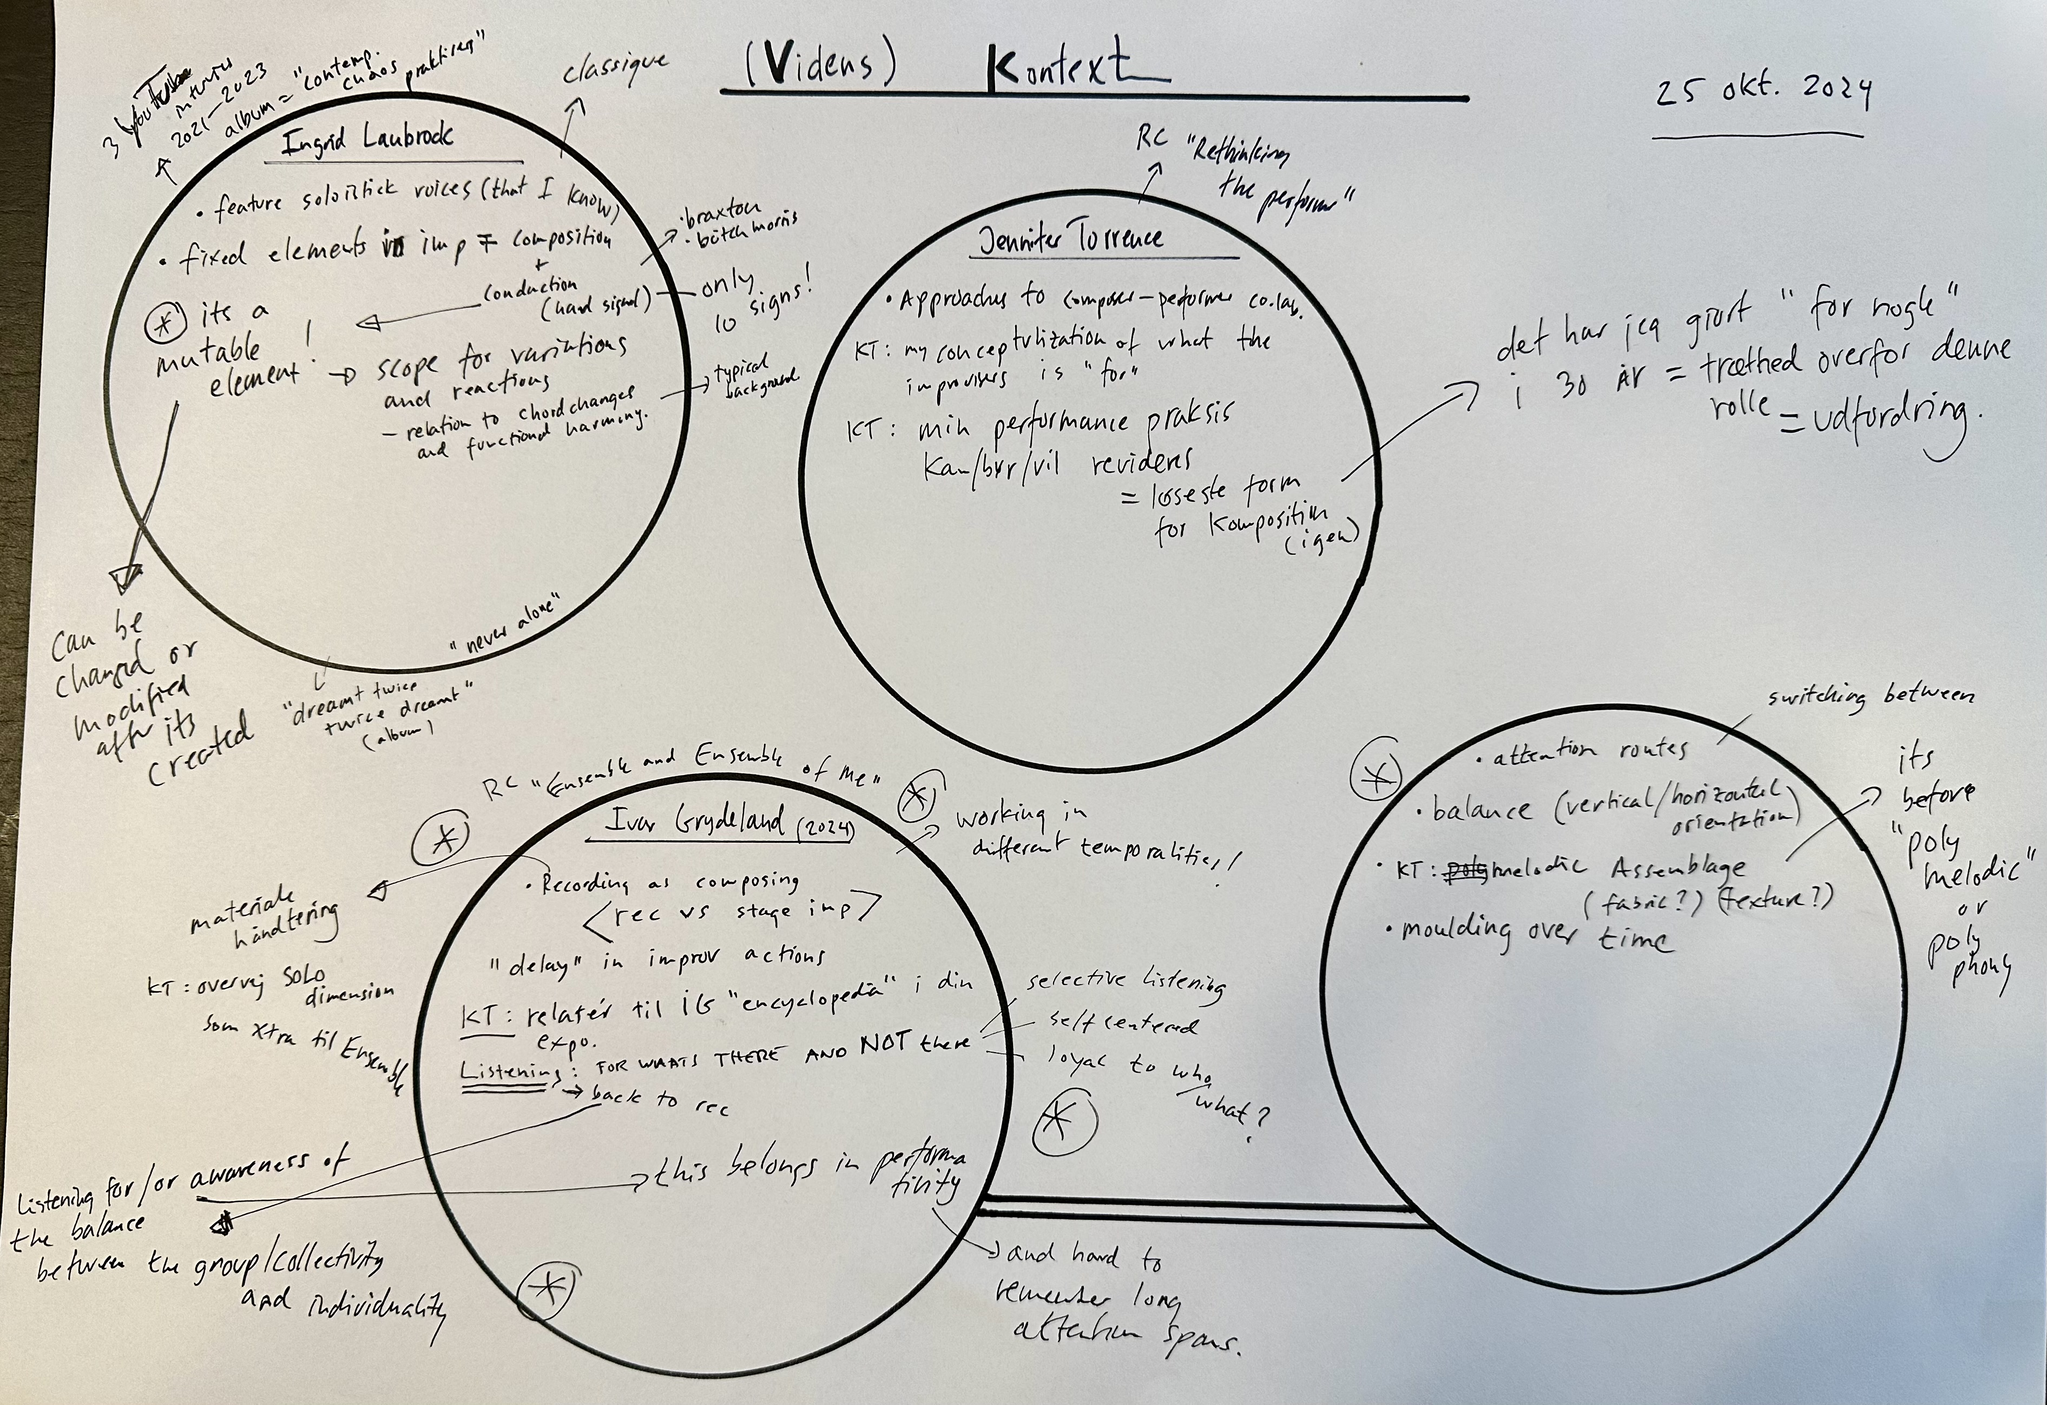 (Videns) Kontext
25 okt. 2024
3 YouTube
interviews
2021-2023
album = "contemp.
chaos praktises"
classique
Ingrid Laubrock
• feature soloistick voices (that I know)
• fixed elements in imp = composition
+
conduction
(hand signal)
• braxton
• butch morris
only
10 signs!
* its a
mutable
element!
→ scope for variations
and reactions
- relation to chord changes
and functional harmony.
typical
background
can be
changed or
modified
after its
created
"never alone"
"dreamt twice
twice dreamt"
(album)
RC "Rethinking
the performer"
Jennifer Torrence
• Approaches to composer-performer co.lab.
KT: my conceptulization of what the
improvisers is "for"
KT: min performance praksis
kan/bør/vil revideres
= løseste form
for komposition
(igen)
det har jeg gjort "for nogle"
i 30 år = træthed overfor denne
rolle
= udfordring.
RC "Ensemble and Ensemble of Me"
Ivar Grydeland (2024)
* working in
different temporalities!
• Recording as composing
<rec vs stage imp>
"delay" in improv actions
KT: relatér til IG "encyclopedia" i din
expo.
Listening: FOR WHATS THERE AND NOT there
→ back to rec
*
materiale
håndtering
KT: overvej SOLO
dimension
som xtra til Ensemble
selective listening
self centered
loyal to who
what?
*
Listening for/or awareness of
the balance
between the group/collectivity
and individuality
→ this belongs in performa
tivity
→ and hard to
remember long
attention spans.
*
*
switching between
• attention routes
• balance (vertical/horizontal
orientation)
• KT: poly melodic Assemblage
(fabric?) (texture?)
• moulding over time
its
before
"poly
melodic"
or
poly
phony